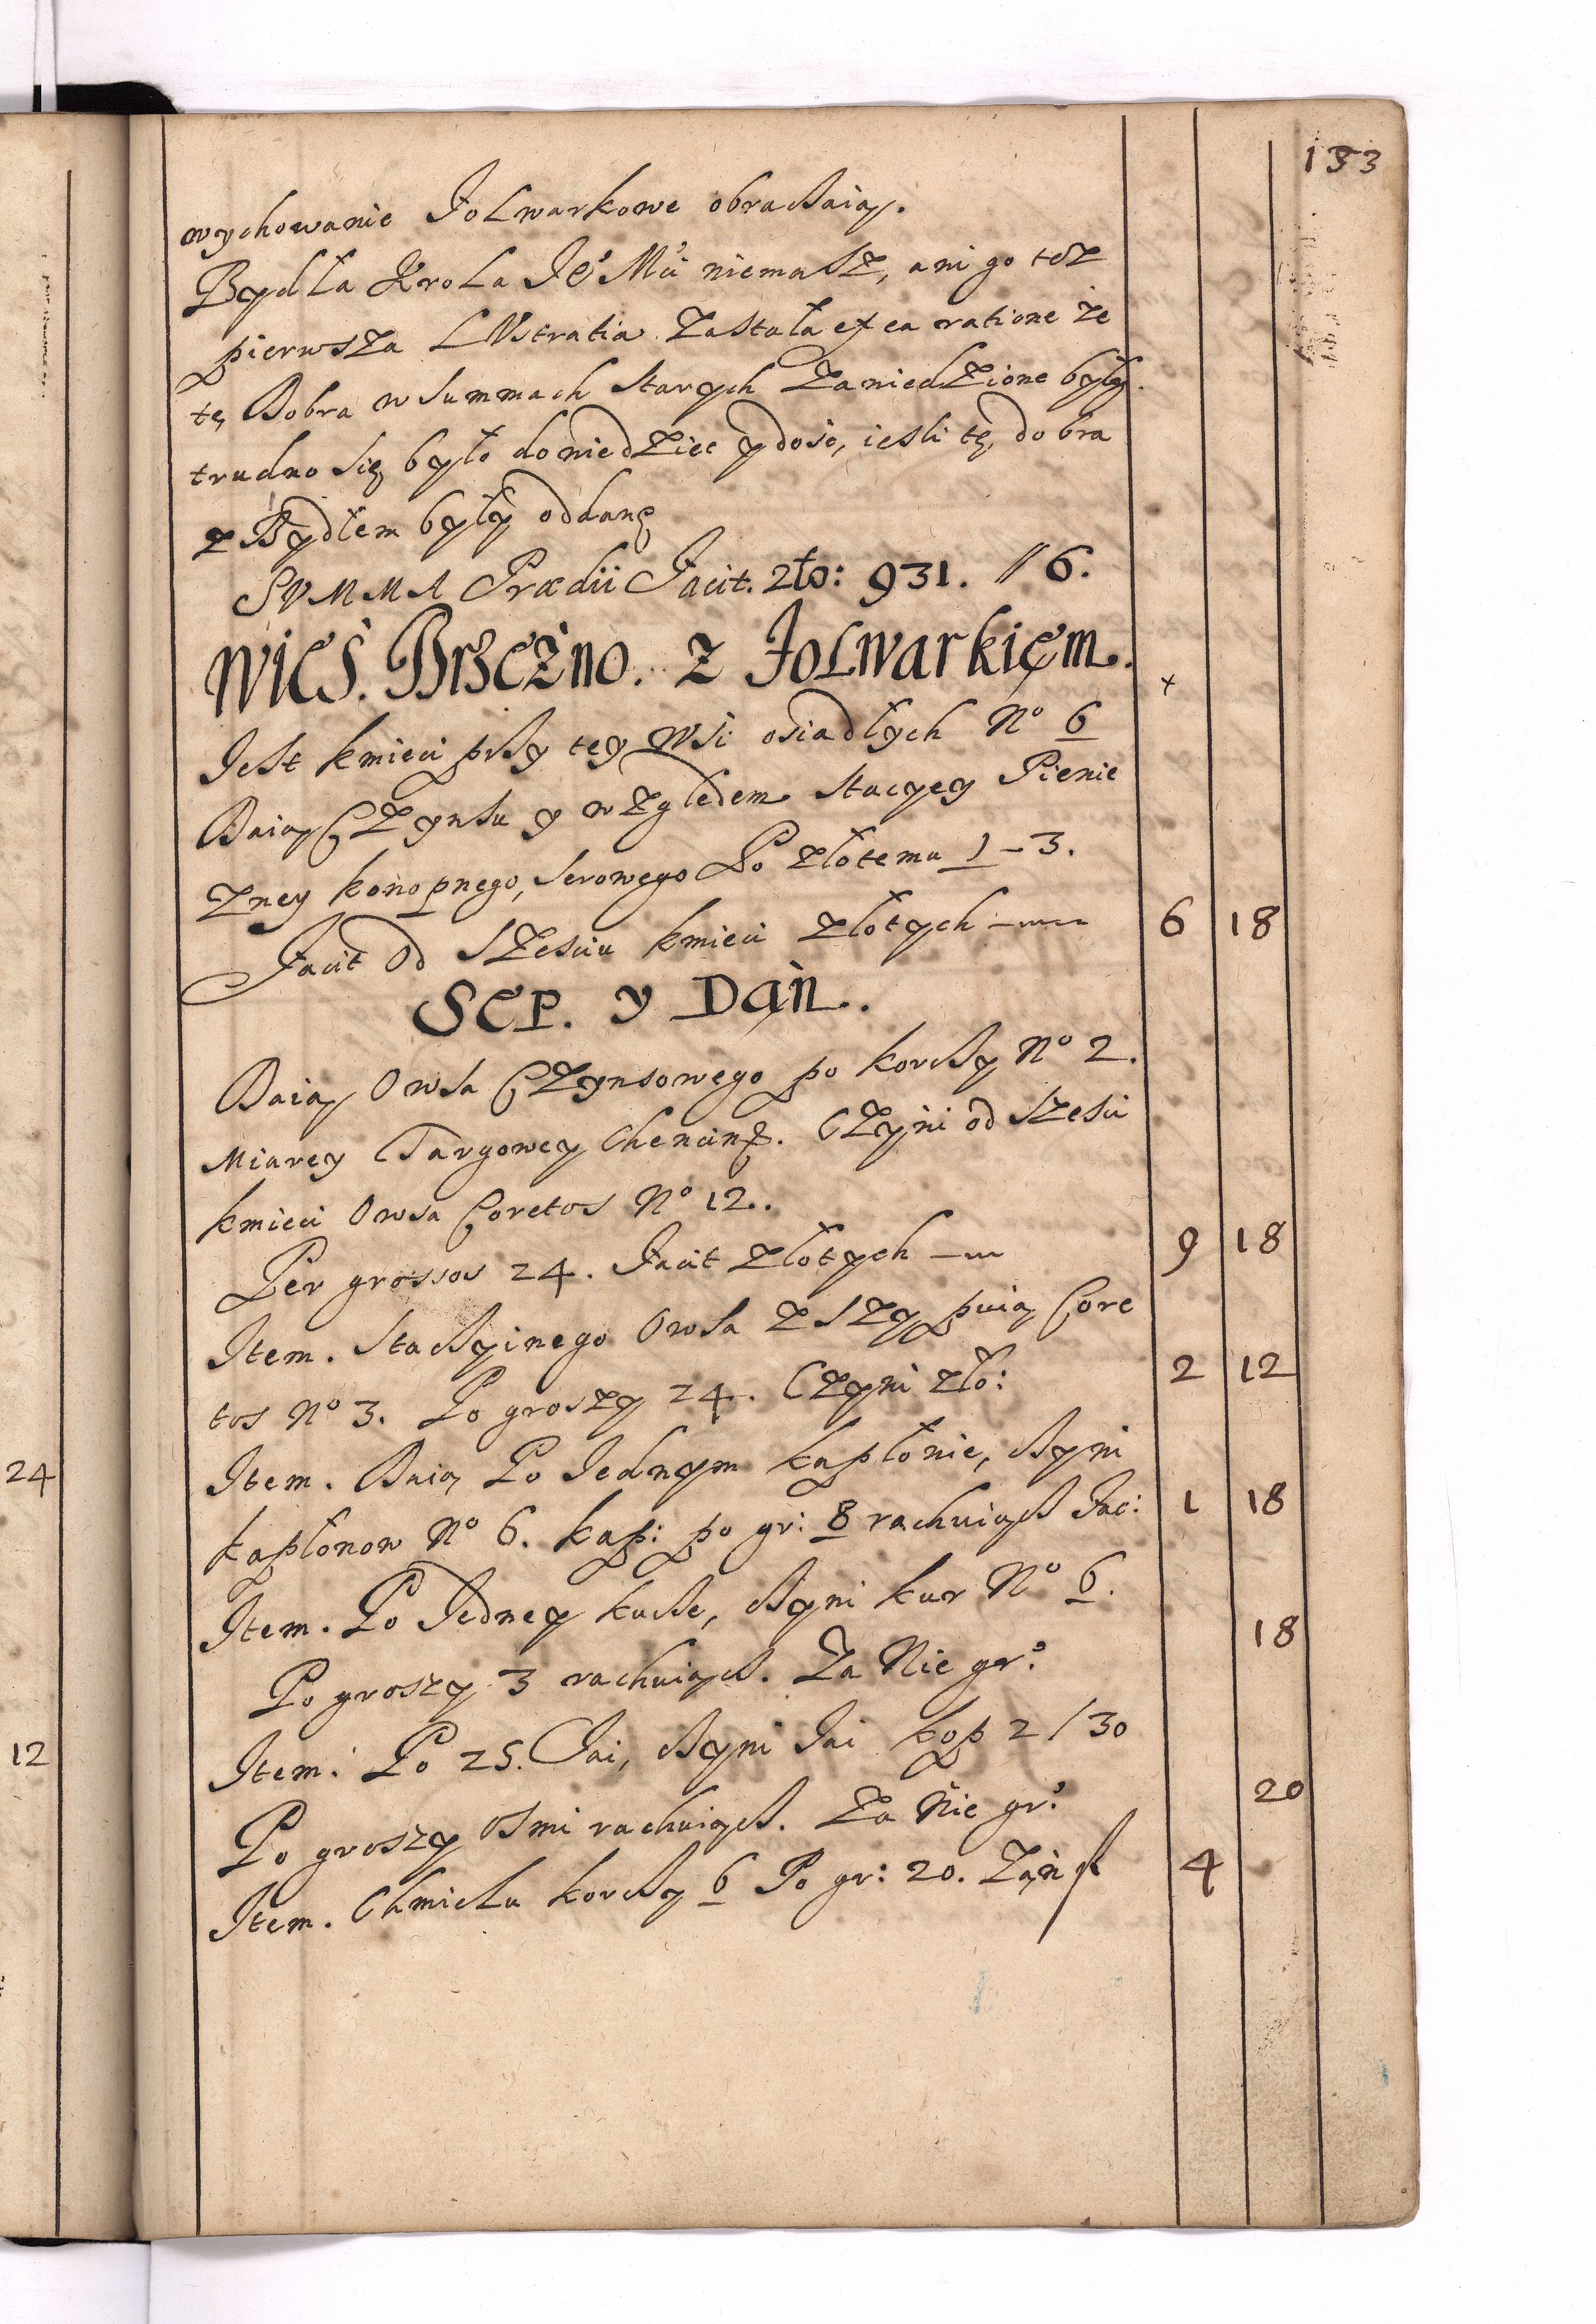 133
wychowanie Folwarkowe obracaią.
Bydła Krola Je° Mci niemasz, ani go też
pierwsza LVstratia zastała ex ea ratione że
te, Dobra w summach starych zawiedzione były.
trudno się było dowiedziec y dosc, iesli tę dobra
z Bydłem były oddanę
SVMMA Prædii Facit. zło: 931. // 6.
WIES. Brzeżno. z Folwarkięm.
Jest kmieci przy tey Wsi osiadłych N° 6
Daią Czynsu y względem stacyey Pienie
zney konopnego, serowego Po złotemu 1 – 3.
Facit Od szesciu kmieci złotych — 6 18
SEP. y Dań.
Daią Owsa Czynsowego po korczy N° 2.
Miarey Targowey Chencinş. Czyni od szesci
kmieci Owsa Coretos N° 12.
Per grossos 24. Facit złotych — 9 18
Item. Staczyinego Owsa zsypuią Core
tos N° 3. Po groszy 24. Czyni zło: 2 12
Item. Daią Po Jednym kapłonie, czyni
kapłonow N° 6. kap: po gr: 8 rachuiącz Faci: 1 18
Item. Po Jedney kucze, czyni kur N° 6.
Po groszy 3 rachuiącz. Za Nie gr: 18
Item: Po 25. Jai, czyni Jai kop 2 / 30
Po groszy Osmi rachuiącz. Za Nie gr: 20
Item. Chmielu korczy 6 Po gr: 20. Zań f 4
24
12